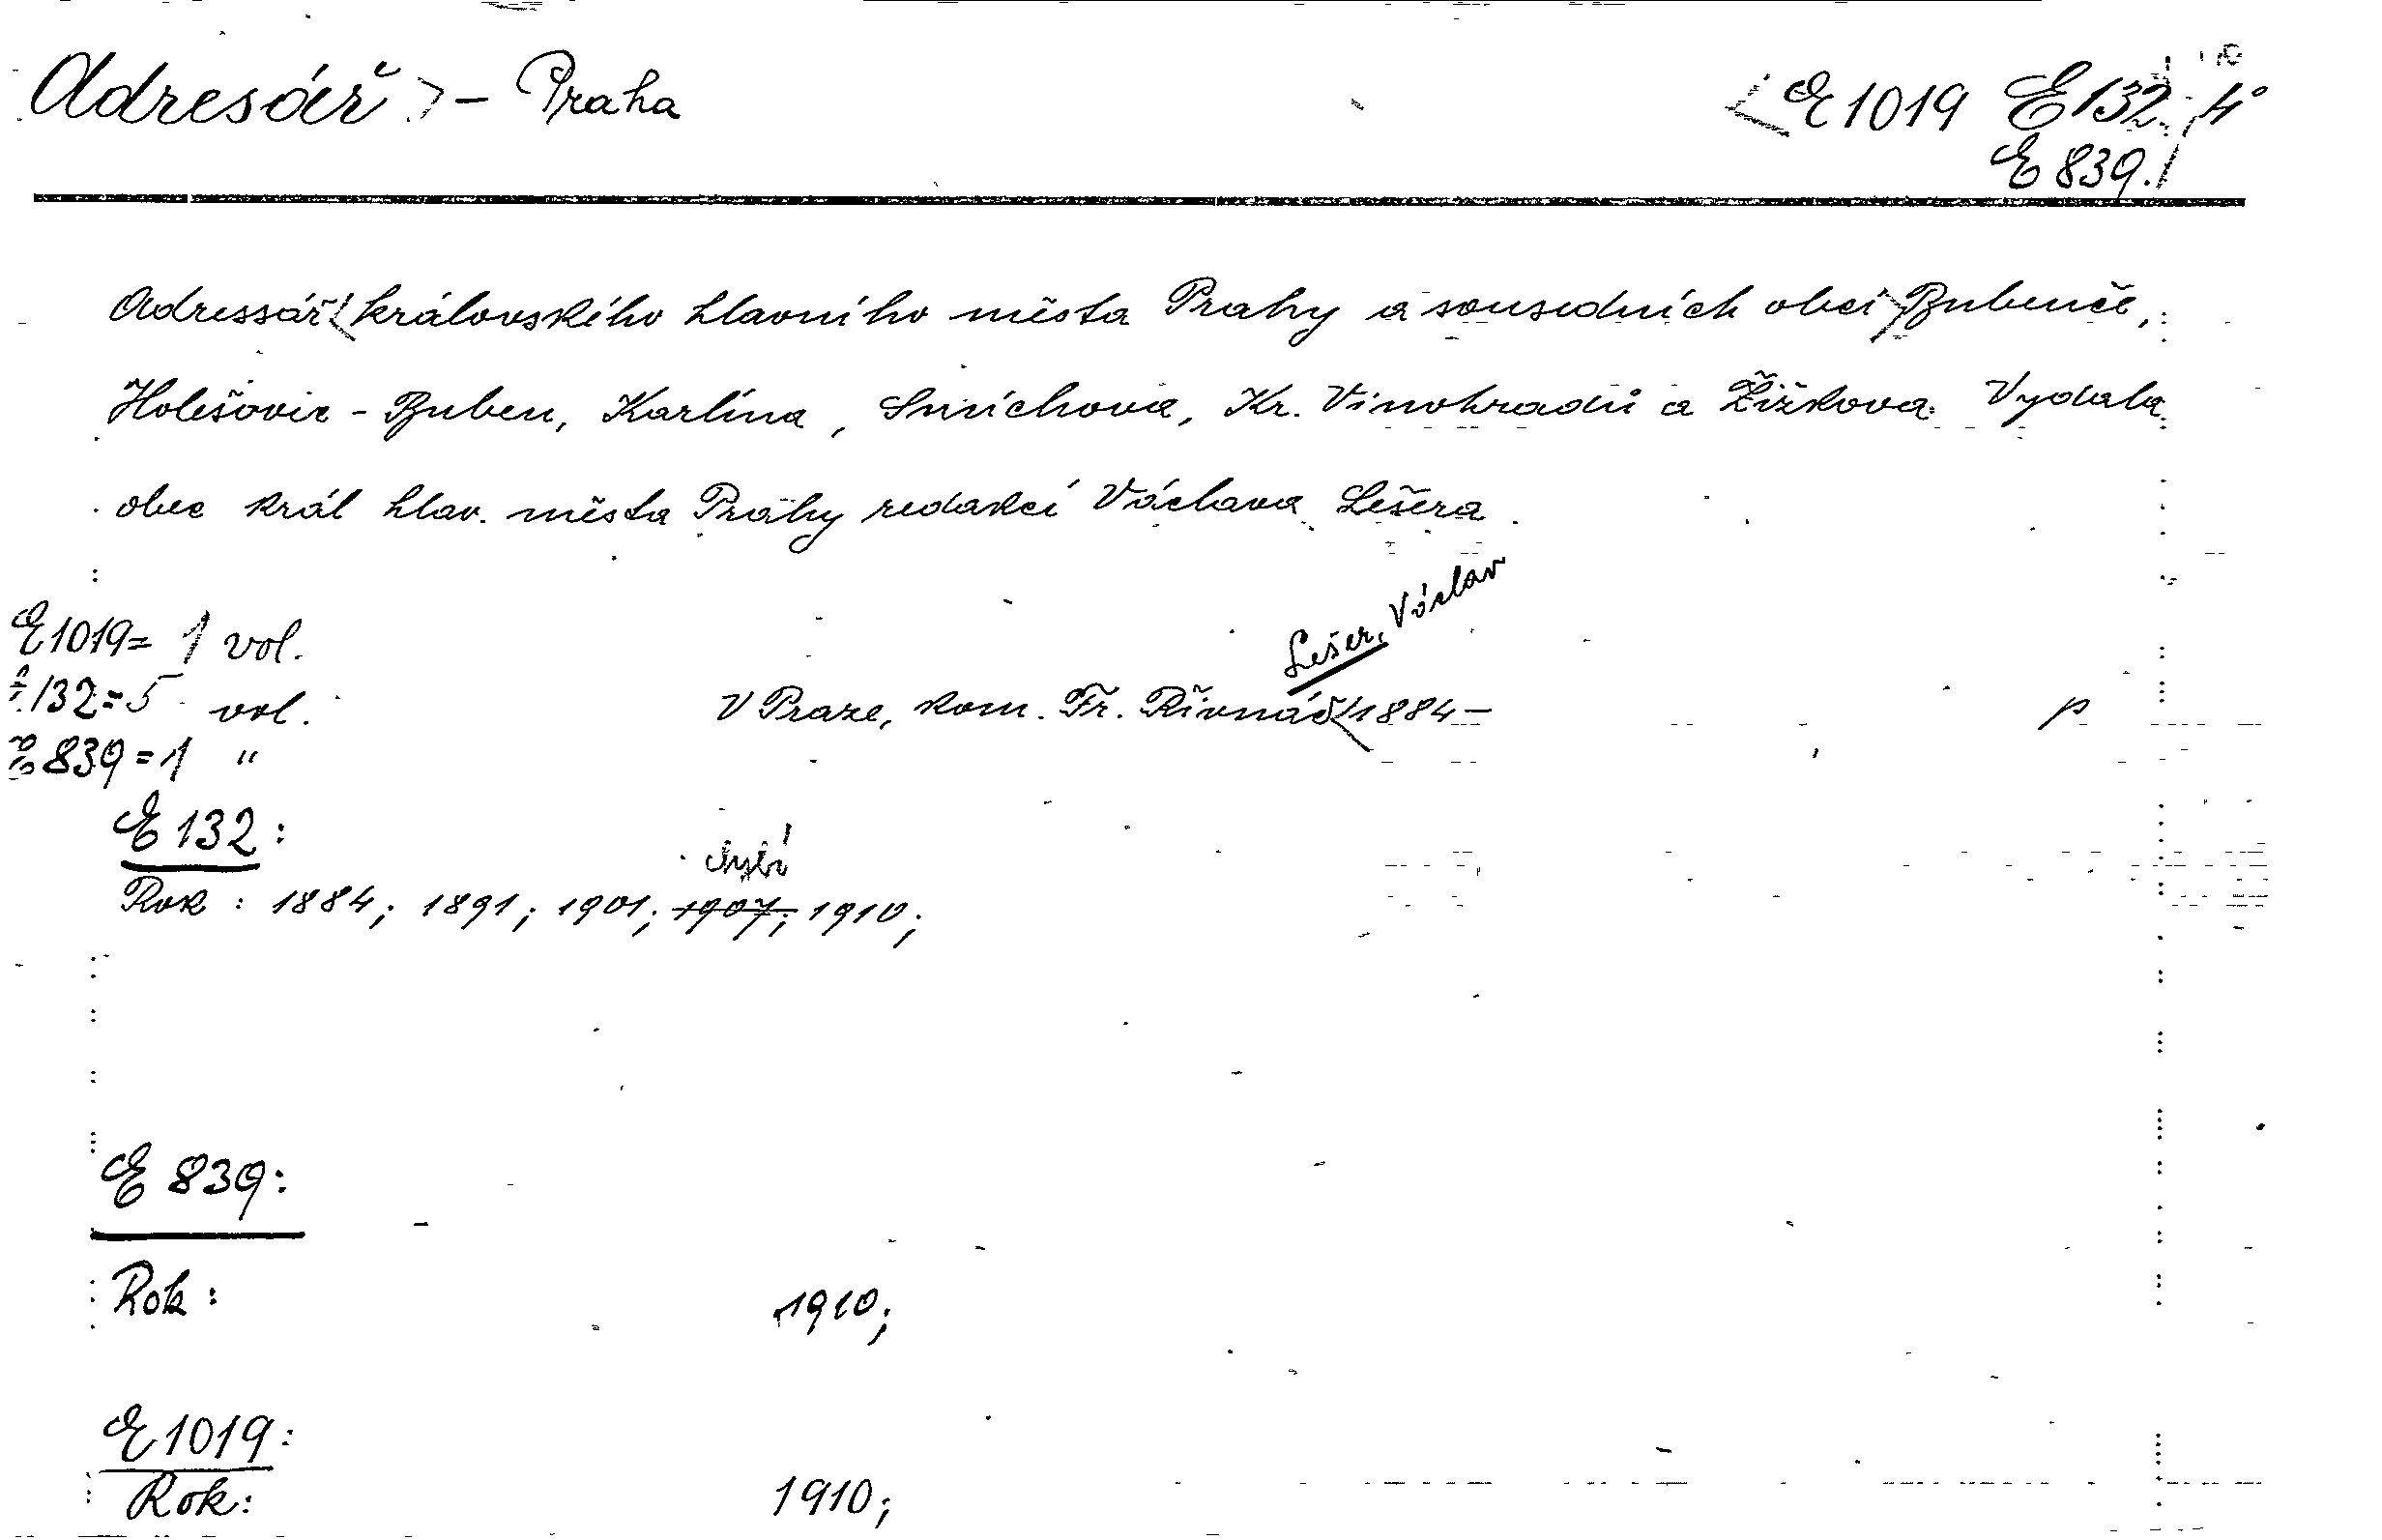 Adresář – Praha
E 1019 E 132 4°
E 839.
Adressář královského hlavního města Prahy a sousedních obcí Bubenče,
Holešovic - Buben, Karlína, Smíchova, Kr. Vinohradů a Žižkova. Vydala
obec král hlav. města Prahy redakcí Václava Lešera
Lešer, Václav
E 1019 = 1 vol.
E 132 = 5 vol.
V Praze, kom. Fr. Řivnáč 1884 – p
E 839 = 1 "
E 132:
chybí
Rok : 1884; 1891; 1901; 1907; 1910;
E 839:
Rok : 1910;
E 1019:
Rok: 1910;